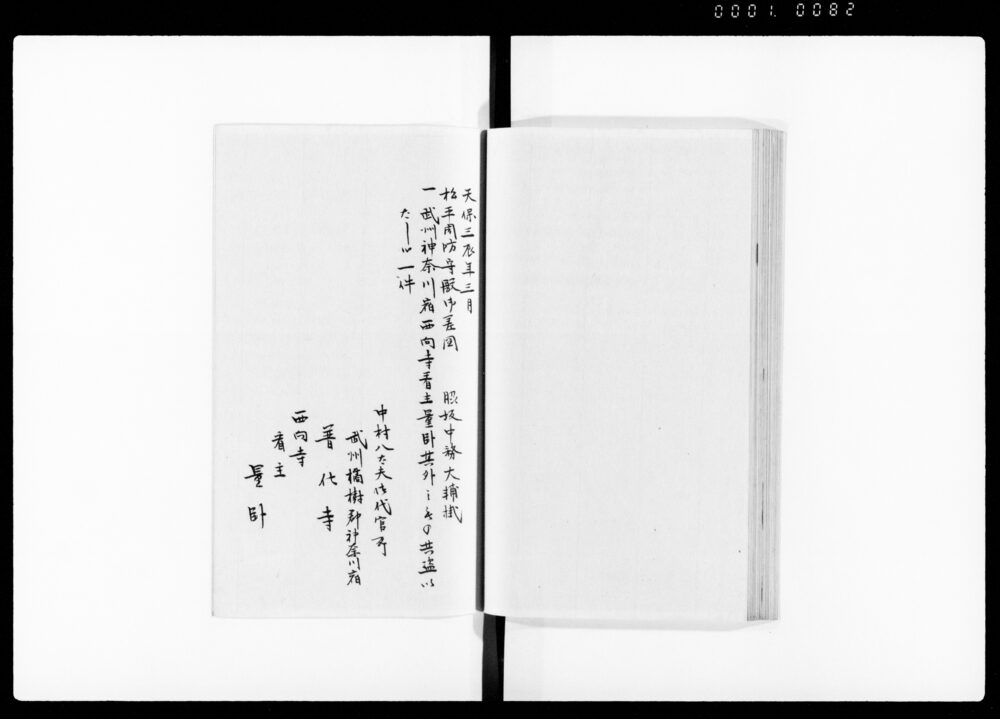 0001. 0082
天保三辰年三月
松平周防守殿御差図 脇坂中務大輔掛
一 武州神奈川宿西向寺看主量卧其外之もの共盗いたし候一件
中村八太夫御代官所
武州橘樹郡神奈川宿
普化寺
西向寺
看主
量卧